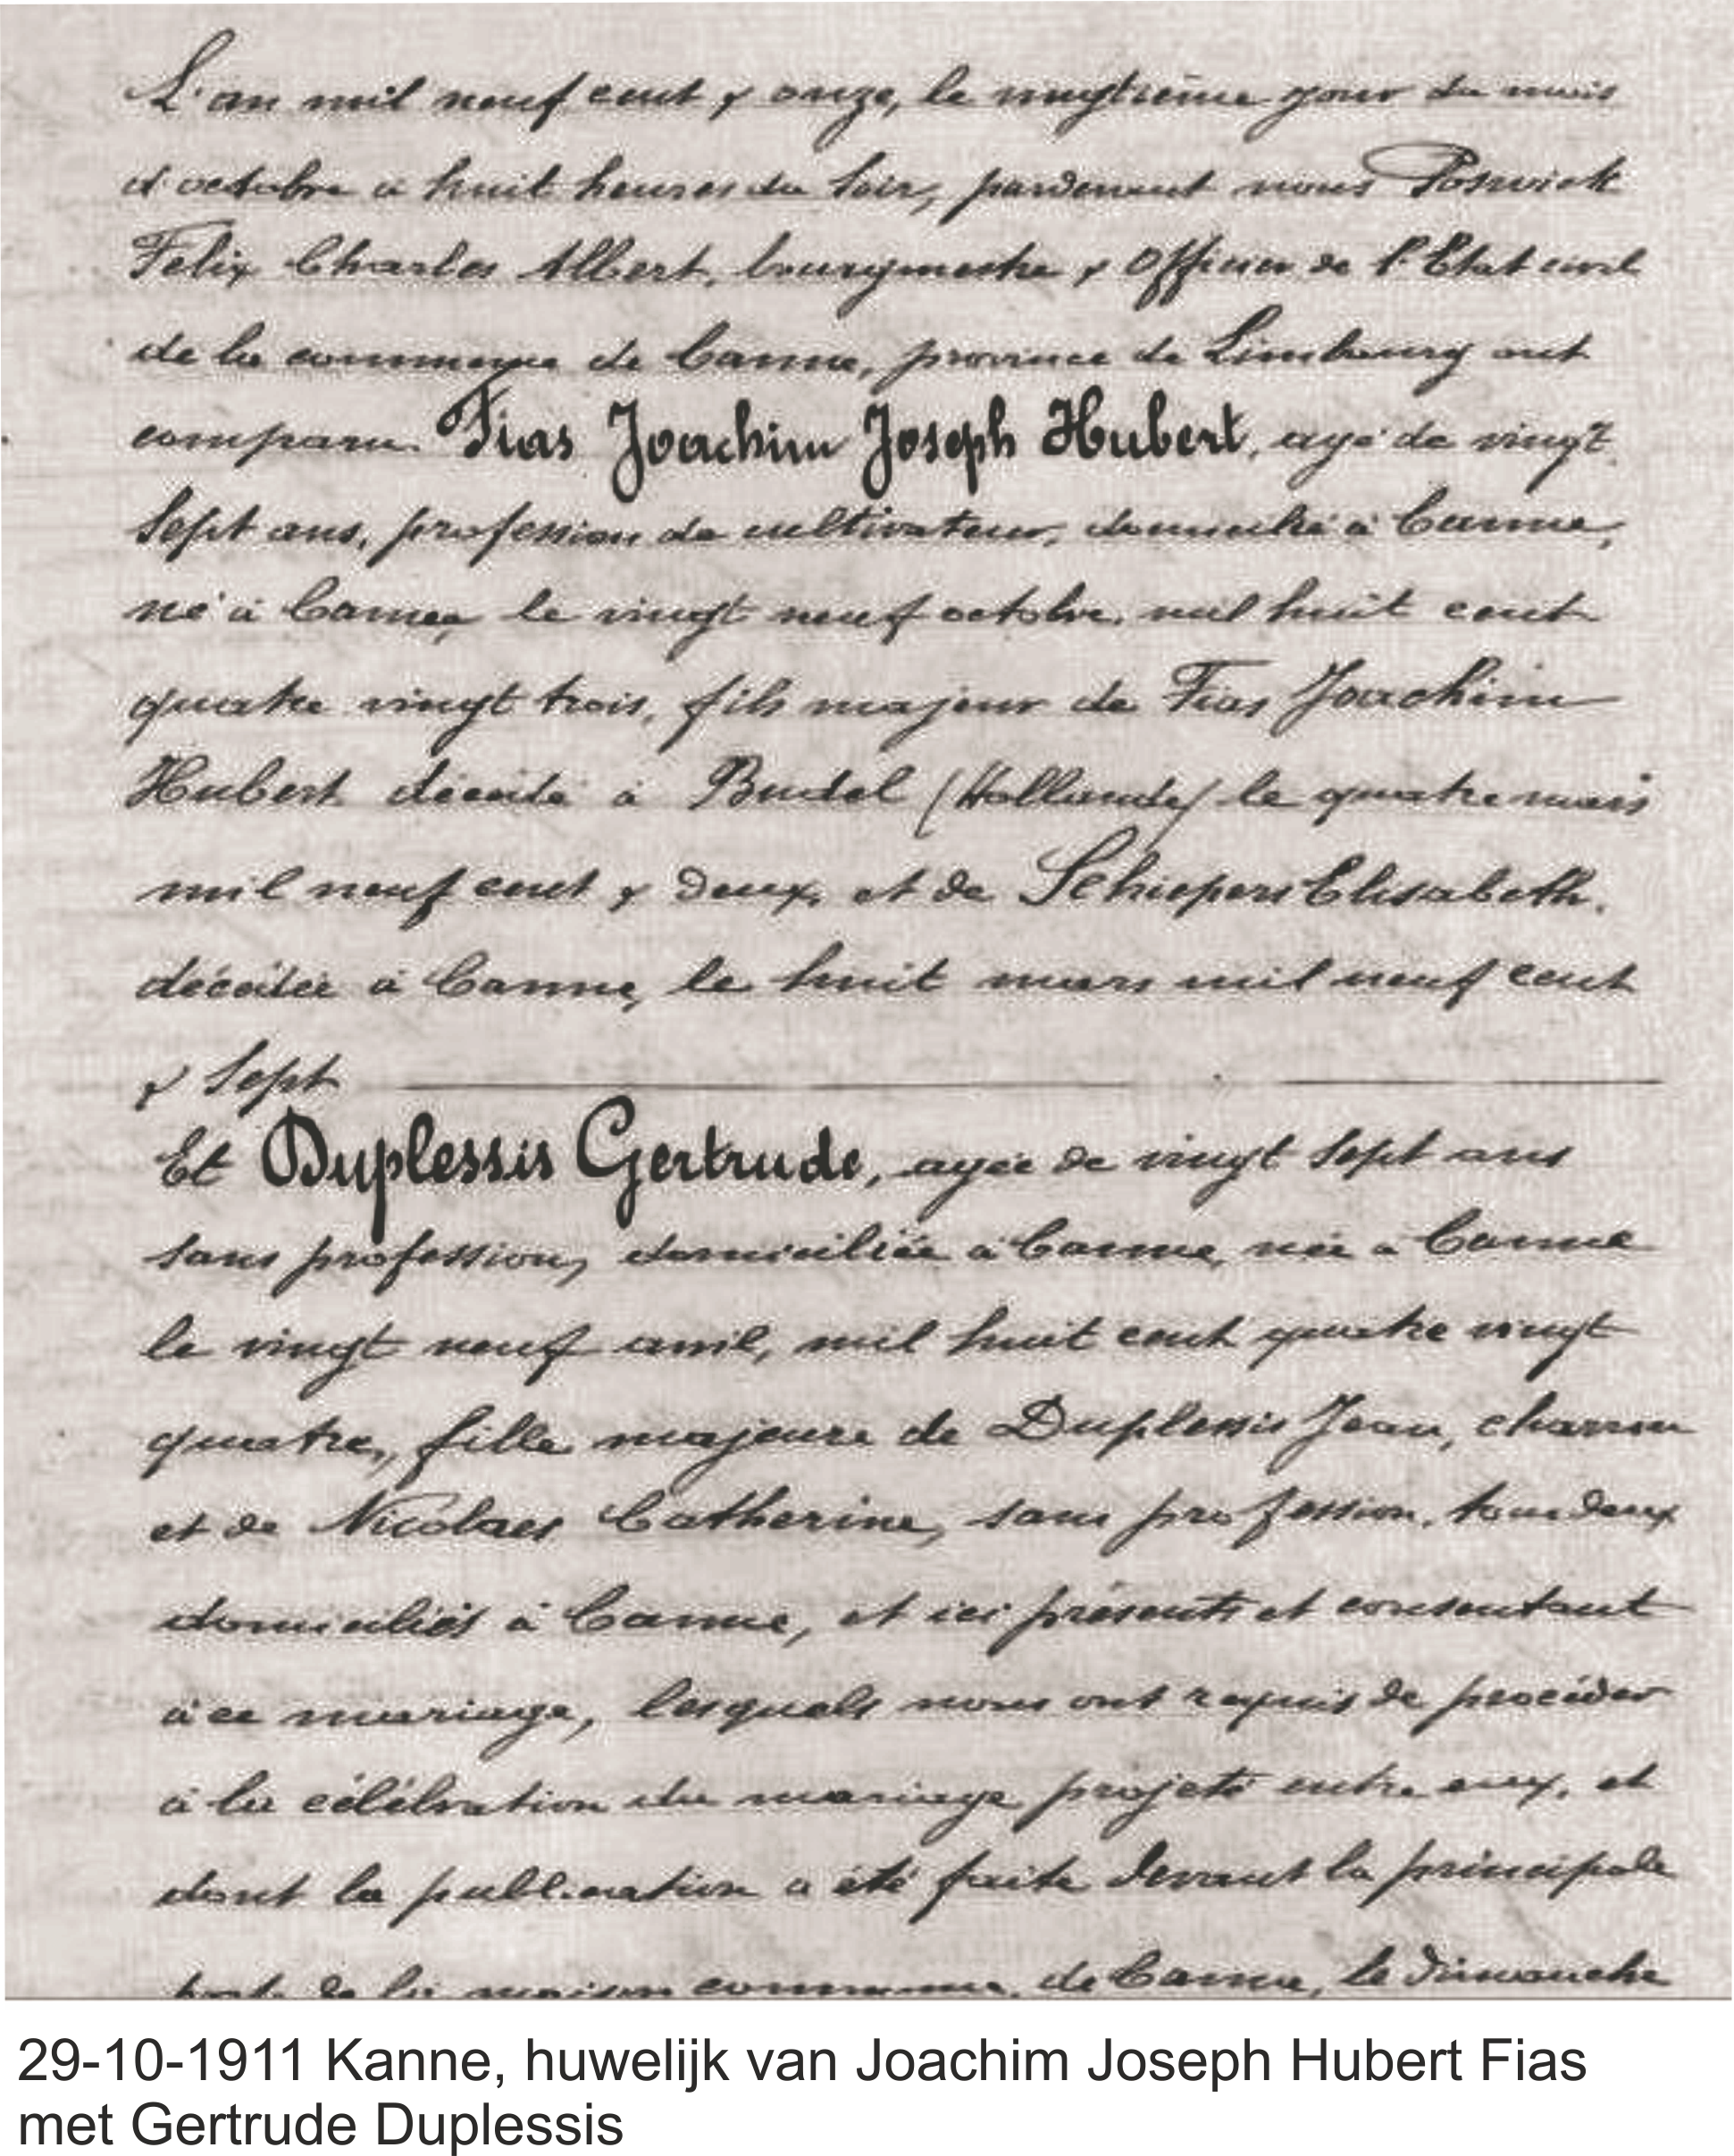 L'an mil neuf cent & onze, le vingtième jour du mois
d'octobre à huit heures du soir, pardevant nous Poswick
Felix Charles Albert, bourgmestre & Officier de l'Etat civil
de la commune de Canne, province de Limbourg ont
comparu Fias Joachim Joseph Hubert, agé de vingt
sept ans, profession de cultivateur, domicilié à Canne,
né à Canne, le vingt neuf octobre, mil huit cent
quatre vingt trois, fils majeur de Fias Joachim
Hubert décédé à Budel (Hollande) le quatre mars
mil neuf cent & deux, et de Schiepers Elisabeth.
décédée à Canne, le huit mars mil neuf cent
& sept
Et Duplessis Gertrude, agée de vingt sept ans
sans profession, domiciliée à Canne, née à Canne
le vingt neuf avril, mil huit cent quatre vingt
quatre, fille majeure de Duplessis Jean, charron
et de Nicolaes Catherine, sans profession, tous deux
domiciliés à Canne, et ici présents et consentant
à ce mariage, lesquels nous ont requis de procéder
à la célébration du mariage projeté entre eux, et
dont la publication a été faite devant la principale
porte de la maison commune, de Canne, le dimanche
29-10-1911 Kanne, huwelijk van Joachim Joseph Hubert Fias
met Gertrude Duplessis